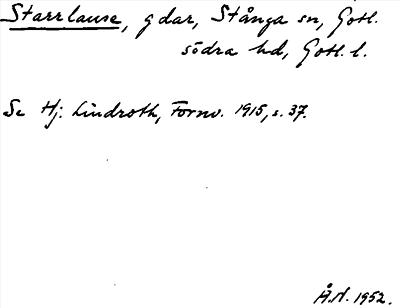 Starrlause, gdar, Stånga sn, Gotl.
södra hd, Gotl. l.
Se Hj. Lindroth, Fornv. 1915, s. 37.
Å.N. 1952.